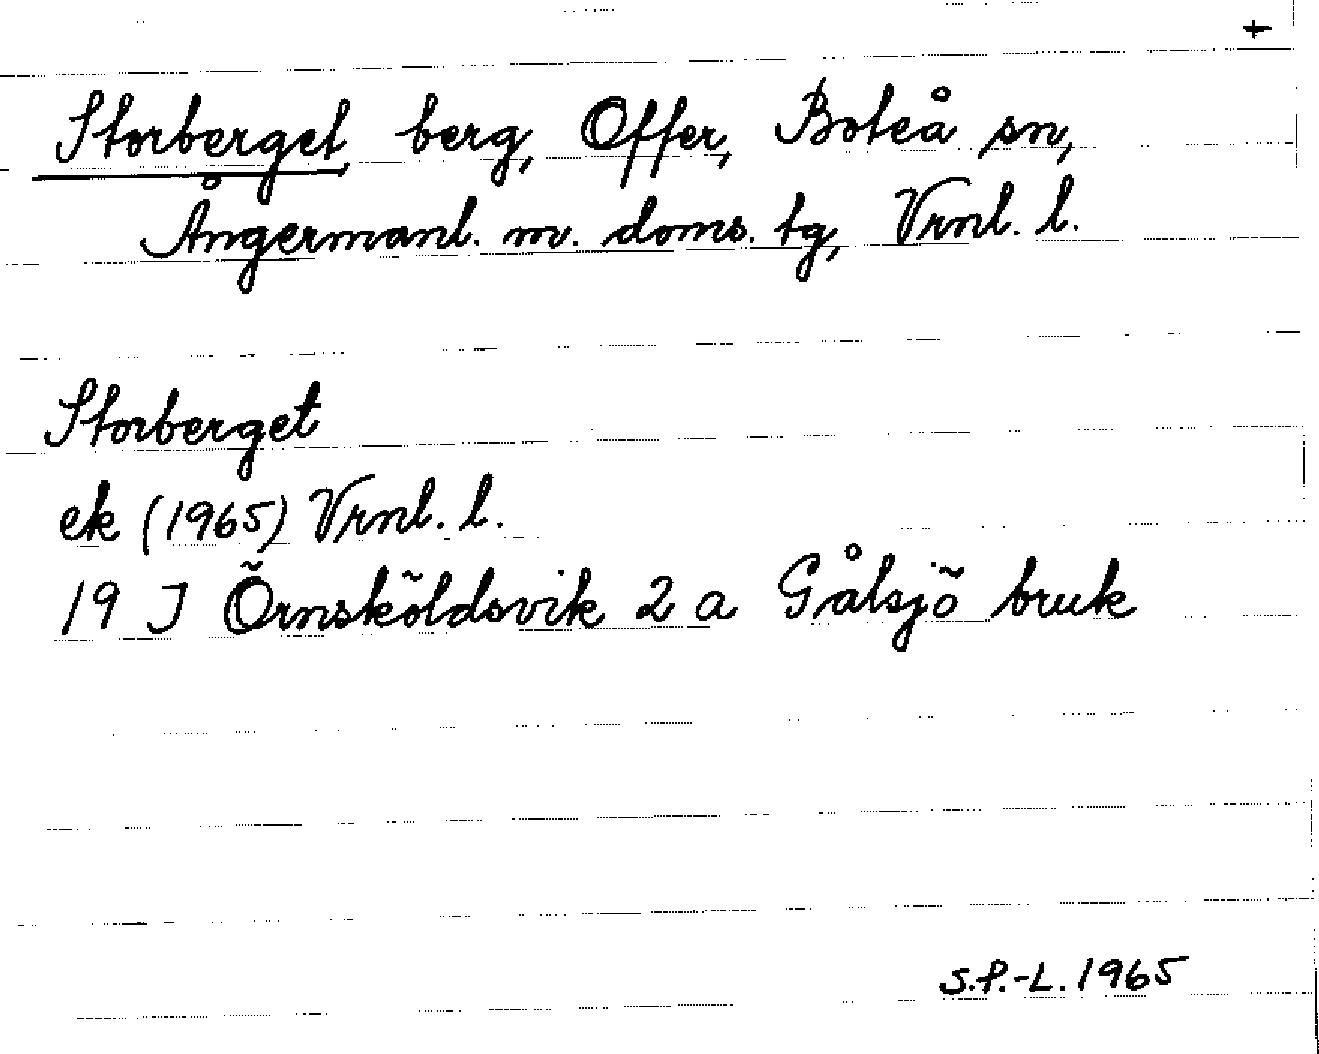 +
Storberget, berg, Offer, Boteå sn,
Ångermanl. m. doms. tg, Vrnl. l.
Storberget
ek (1965) Vrnl. l.
19 J Örnsköldsvik 2 a Gålsjö bruk
S.P.-L. 1965